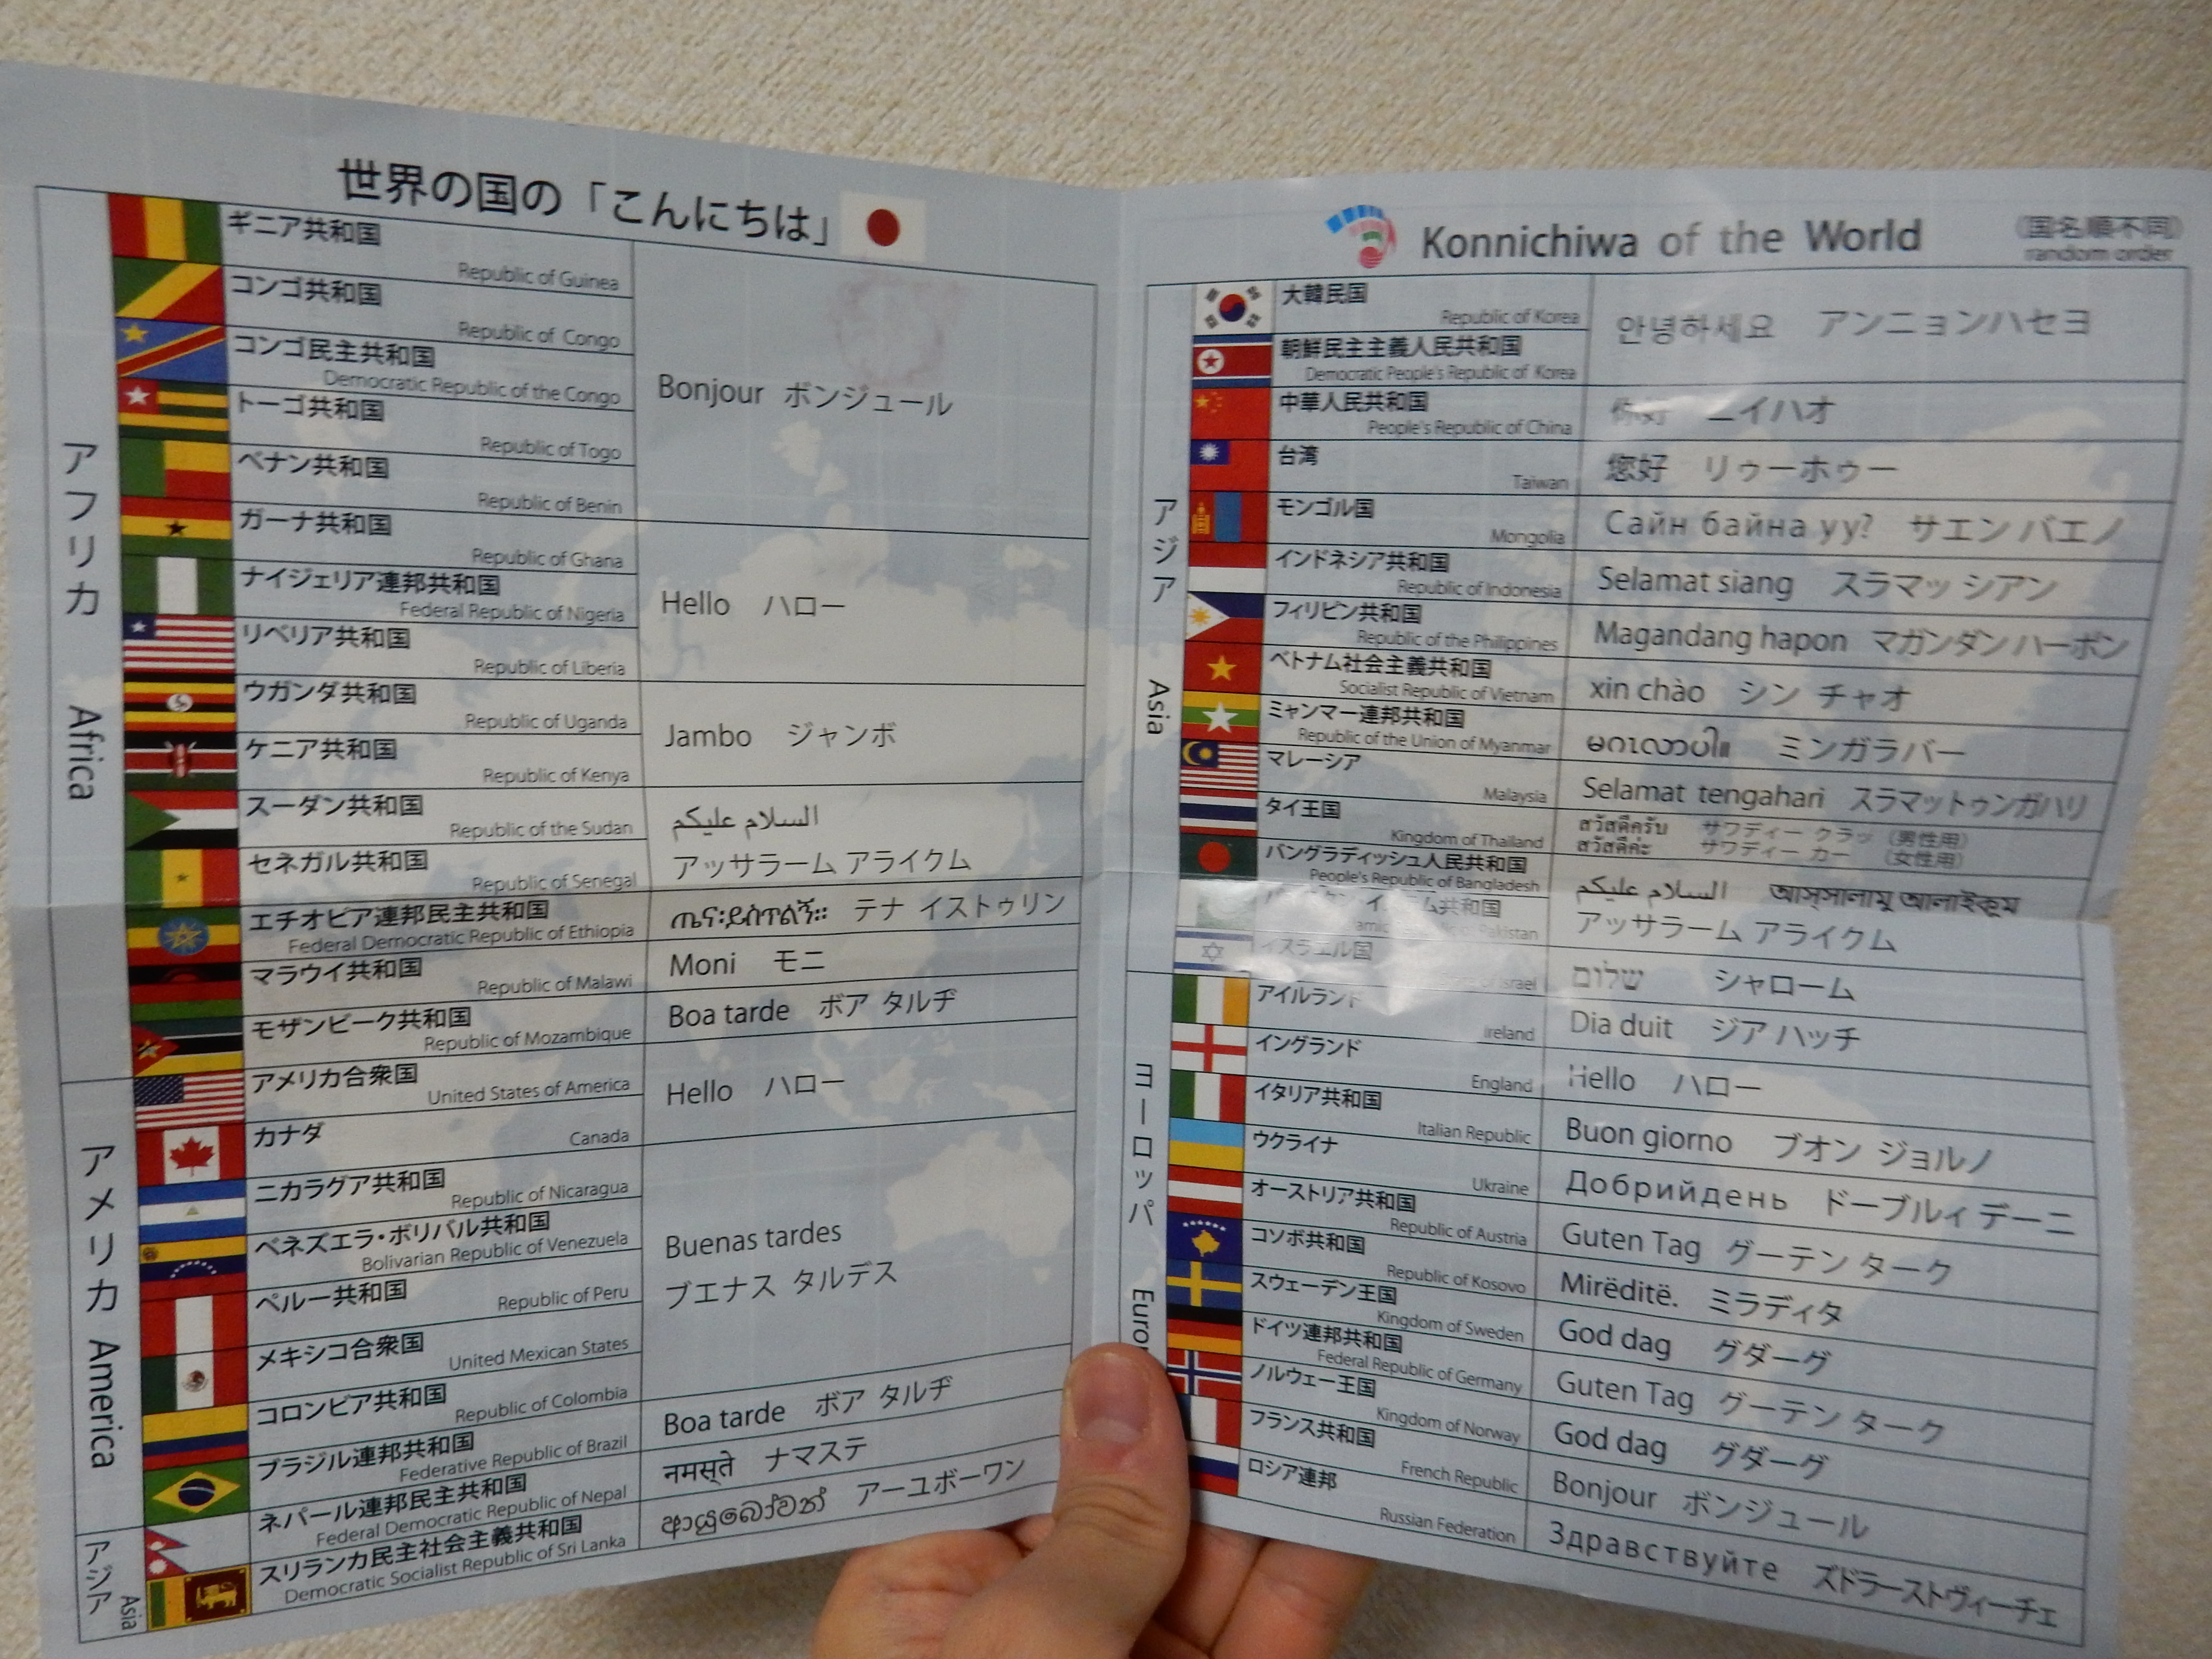 世界の国の「こんにちは」
アフリカ Africa
ギニア共和国
Republic of Guinea
コンゴ共和国
Republic of Congo
コンゴ民主共和国
Democratic Republic of the Congo
トーゴ共和国
Republic of Togo
ベナン共和国
Republic of Benin
Bonjour ボンジュール
ガーナ共和国
Republic of Ghana
ナイジェリア連邦共和国
Federal Republic of Nigeria
リベリア共和国
Republic of Liberia
Hello ハロー
ウガンダ共和国
Republic of Uganda
ケニア共和国
Republic of Kenya
Jambo ジャンボ
スーダン共和国
Republic of the Sudan
セネガル共和国
Republic of Senegal
السلام عليكم
アッサラーム アライクム
エチオピア連邦民主共和国
Federal Democratic Republic of Ethiopia
ጤና፡ይስጥልኝ። テナ イストゥリン
マラウイ共和国
Republic of Malawi
Moni モニ
モザンビーク共和国
Republic of Mozambique
Boa tarde ボア タルヂ
アメリカ America
アメリカ合衆国
United States of America
カナダ
Canada
Hello ハロー
ニカラグア共和国
Republic of Nicaragua
ベネズエラ・ボリバル共和国
Bolivarian Republic of Venezuela
ペルー共和国
Republic of Peru
メキシコ合衆国
United Mexican States
コロンビア共和国
Republic of Colombia
Buenas tardes
ブエナス タルデス
ブラジル連邦共和国
Federative Republic of Brazil
Boa tarde ボア タルヂ
アジア Asia
ネパール連邦民主共和国
Federal Democratic Republic of Nepal
नमस्ते ナマステ
スリランカ民主社会主義共和国
Democratic Socialist Republic of Sri Lanka
ආයුබෝවන් アーユボーワン
Konnichiwa of the World
(国名順不同)
random order
アジア Asia
大韓民国
Republic of Korea
朝鮮民主主義人民共和国
Democratic People's Republic of Korea
안녕하세요 アンニョンハセヨ
中華人民共和国
People's Republic of China
你好 ニイハオ
台湾
Taiwan
您好 リゥーホゥー
モンゴル国
Mongolia
Сайн байна уу? サエン バエノ
インドネシア共和国
Republic of Indonesia
Selamat siang スラマッ シアン
フィリピン共和国
Republic of the Philippines
Magandang hapon マガンダン ハーポン
ベトナム社会主義共和国
Socialist Republic of Vietnam
xin chào シン チャオ
ミャンマー連邦共和国
Republic of the Union of Myanmar
ミンガラバー
マレーシア
Malaysia
Selamat tengahari スラマットゥンガハリ
タイ王国
Kingdom of Thailand
สวัสดีครับ サワディー クラッ (男性用)
สวัสดีค่ะ サワディー カー (女性用)
バングラディッシュ人民共和国
People's Republic of Bangladesh
共和国
Pakistan
السلام عليكم আস্সালামু আলাইকুম
アッサラーム アライクム
イスラエル国
Israel
שלום シャローム
ヨーロッパ
アイルランド
Ireland
Dia duit ジア ハッチ
イングランド
England
Hello ハロー
イタリア共和国
Italian Republic
Buon giorno ブオン ジョルノ
ウクライナ
Ukraine
Добрийдень ドーブルィ デーニ
オーストリア共和国
Republic of Austria
Guten Tag グーテン ターク
コソボ共和国
Republic of Kosovo
Mirëditë. ミラディタ
スウェーデン王国
Kingdom of Sweden
God dag グダーグ
ドイツ連邦共和国
Federal Republic of Germany
Guten Tag グーテン ターク
ノルウェー王国
Kingdom of Norway
God dag グダーグ
フランス共和国
French Republic
Bonjour ボンジュール
ロシア連邦
Russian Federation
Здравствуйте ズドラーストヴィーチェ